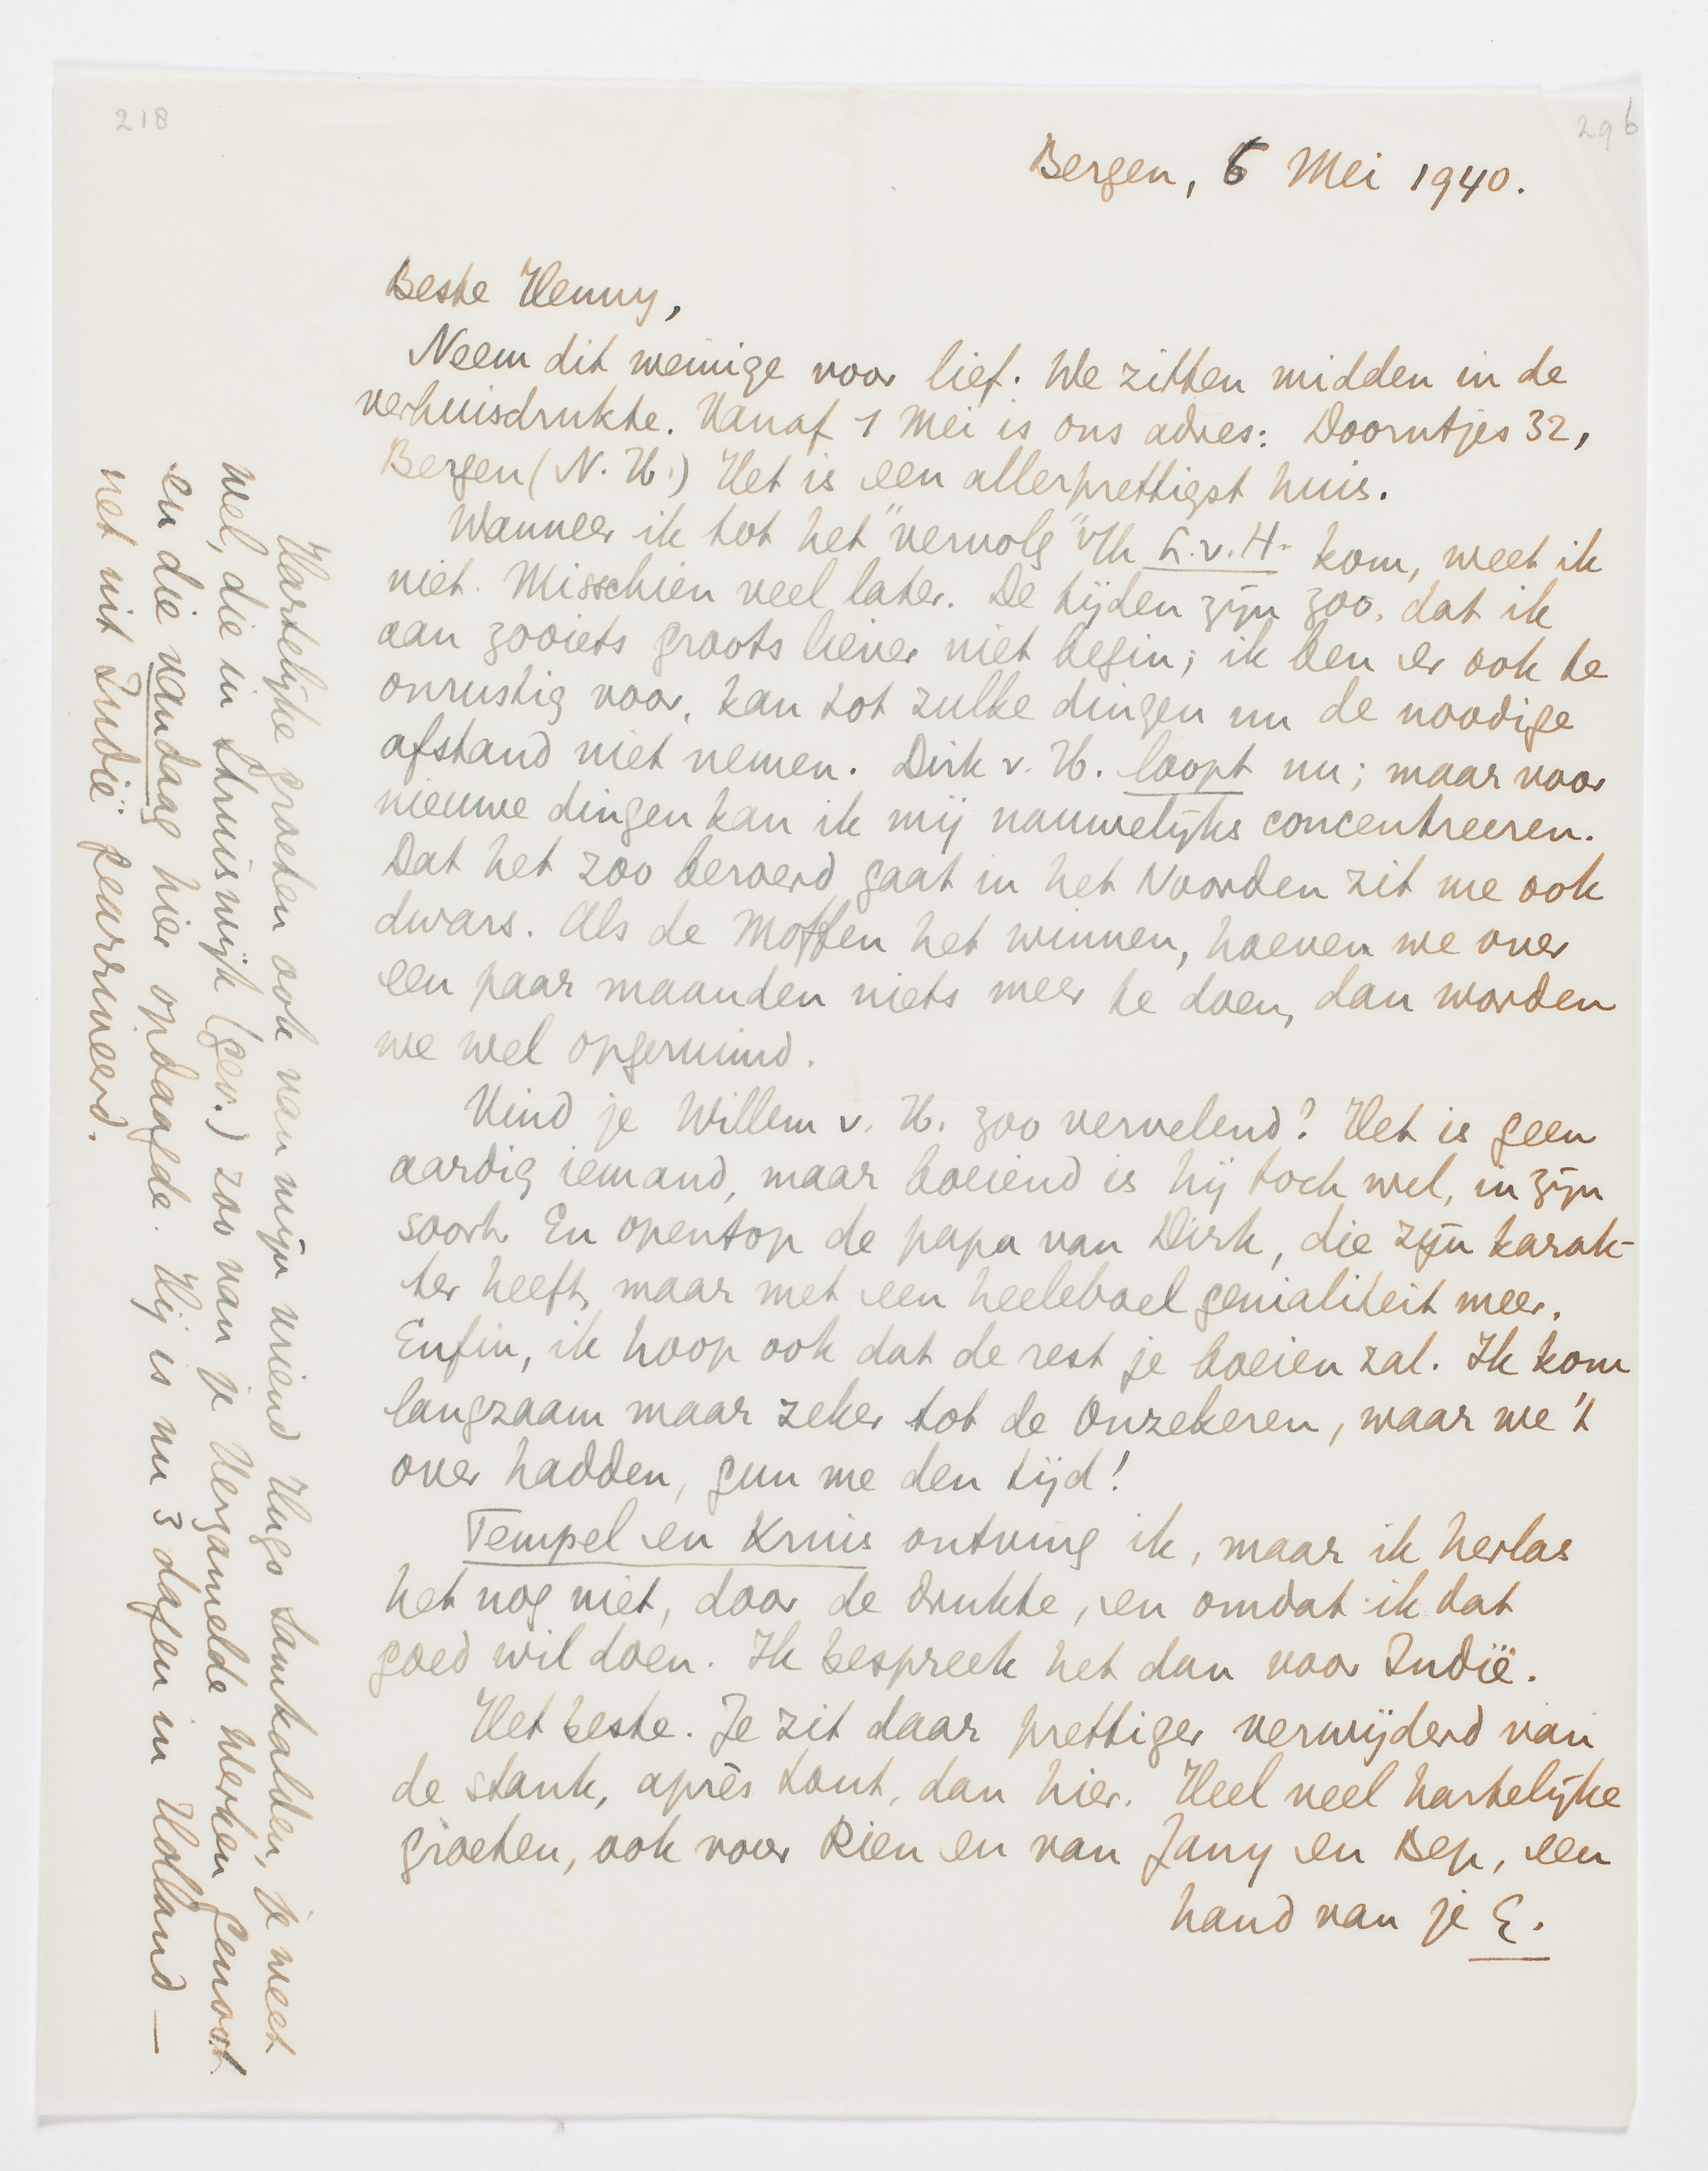 218
296
Bergen, 6 Mei 1940.
Beste Henny,
Neem dit weinige voor lief. We zitten midden in de
verhuisdrukte. Vanaf 1 Mei is ons adres: Doorntjes 32,
Bergen (N. H.) Het is een allerprettigst huis.
Wanneer ik tot het "vervolg" v/h L.v.H. kom, weet ik
niet. Misschien veel later. De tijden zijn zoo, dat ik
aan zooiets groots liever niet begin; ik ben er ook te
onrustig voor, kan tot zulke dingen nu de noodige
afstand niet nemen. Dirk v. H. loopt nu; maar voor
nieuwe dingen kan ik mij nauwelijks concentreeren.
Dat het zoo beroerd gaat in het Noorden zit me ook
dwars. Als de Moffen het winnen, hoeven we over
een paar maanden niets meer te doen, dan worden
we wel opgeruimd.
Vind je Willem v. H. zoo vervelend? Het is geen
aardig iemand, maar boeiend is hij toch wel, in zijn
soort. En opentop de papa van Dirk, die zijn karak-
ter heeft, maar met een heeleboel genialiteit meer.
Enfin, ik hoop ook dat de rest je boeien zal. Ik kom
langzaam maar zeker tot de Onzekeren, waar we 't
over hadden, gun me den tijd!
Tempel en Kruis ontving ik, maar ik herlas
het nog niet, door de drukte, en omdat ik dat
goed wil doen. Ik bespreek het dan voor Indië.
Het beste. Je zit daar prettiger verwijderd van
de stank, après tout, dan hier. Heel veel hartelijke
groeten, ook voor Rien en van Jany en Bep, een
hand van je E.
Hartelijke groeten ook van mijn vriend Hugo Samkalden, je weet
wel, die in Struiswijk (gev.) zoo van je Verzamelde Werken genoot
en die vandaag hier opdaagde. Hij is nu 3 dagen in Holland —
net uit Indië gearriveerd.